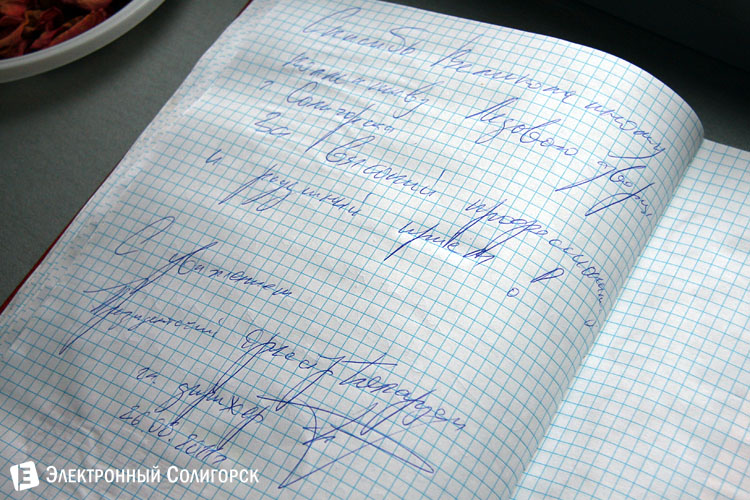 Спасибо
коллективу Ледового Дворца
г. Солигорска
За высокий профессионализм
и радушный приём!
С уважением
Президентский оркестр Беларуси
гл. дирижер
26.08.
Электронный Солигорск